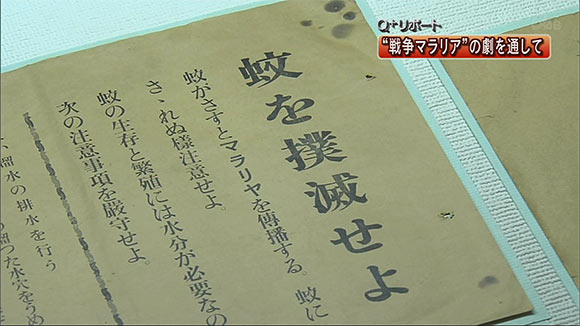 Q+リポート
“戦争マラリア”の劇を通して
蚊を撲滅せよ
蚊がさすとマラリヤを傳播する。蚊に
さゝれぬ様注意せよ。
蚊の生存と繁殖には水分が必要なの
次の注意事項を厳守せよ。
溜水の排水を行う
つた水穴をうめ